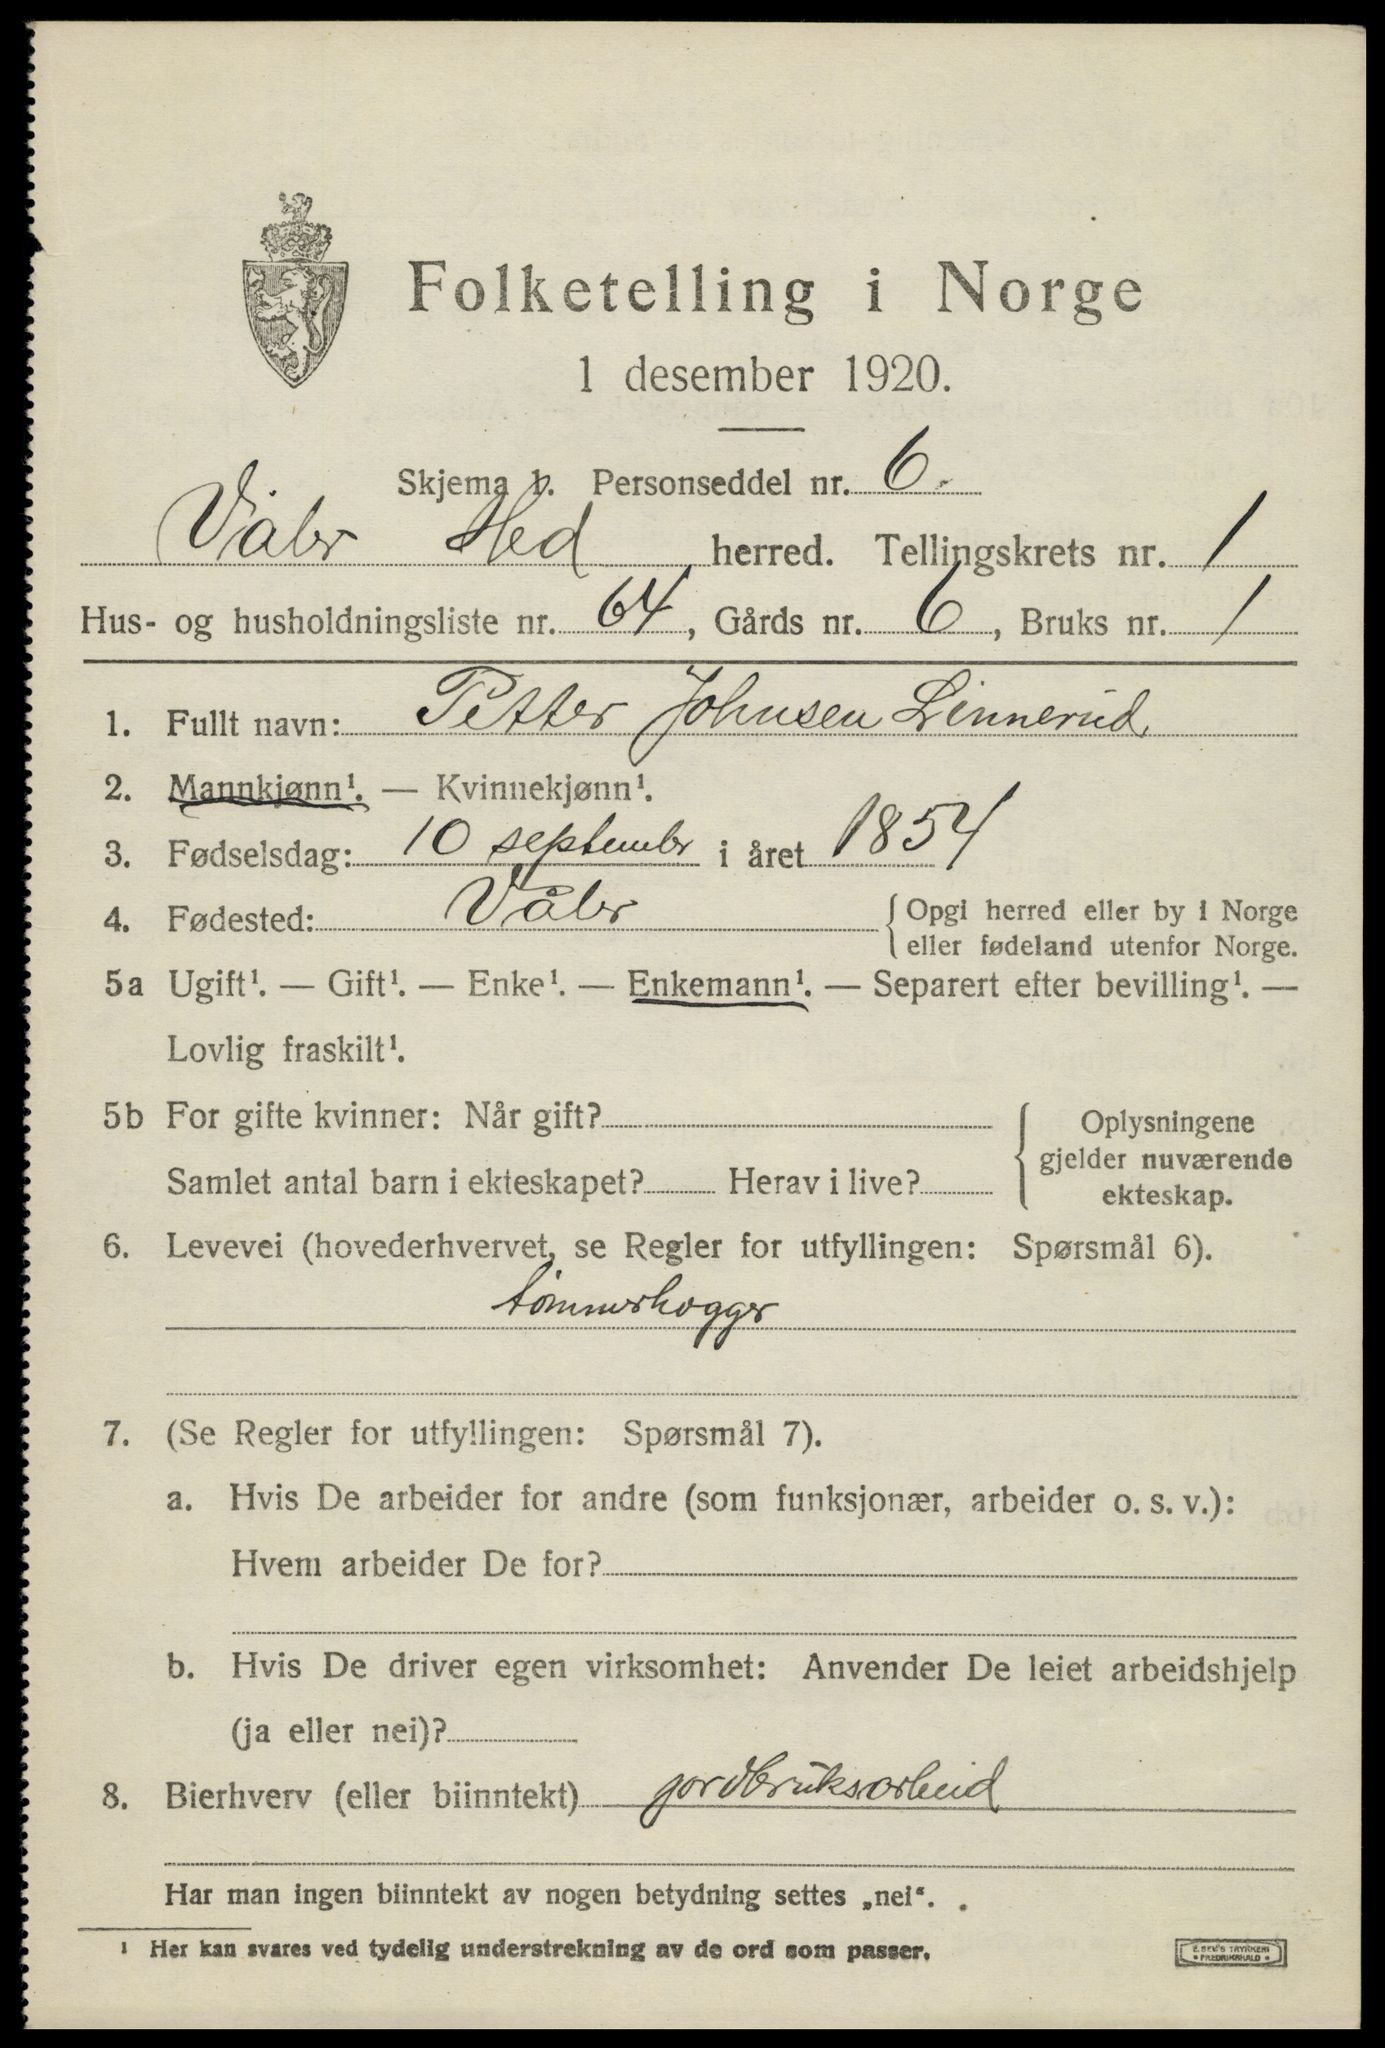 Folketelling i Norge
1 desember 1920.
Skjema b. Personseddel nr. 6.
Våler Hed herred. Tellingskrets nr. 1
Hus- og husholdningsliste nr. 64, Gårds nr. 6, Bruks nr. 1
1. Fullt navn: Petter Johnsen Linnerud
2. Mannkjønn¹. — Kvinnekjønn¹.
3. Fødselsdag: 10 september i året 1854
4. Fødested: Våler {Opgi herred eller by i Norge
eller fødeland utenfor Norge.
5a Ugift¹. — Gift¹. — Enke¹. — Enkemann¹. — Separert efter bevilling¹. —
Lovlig fraskilt¹.
5b For gifte kvinner: Når gift? { Oplysningene
gjelder nuværende
Samlet antal barn i ekteskapet? Herav i live? ekteskap.
6. Levevei (hovederhvervet, se Regler for utfyllingen: Spørsmål 6).
tømmerhogger
7. (Se Regler for utfyllingen: Spørsmål 7).
a. Hvis De arbeider for andre (som funksjonær, arbeider o. s. v.):
Hvem arbeider De for?
b. Hvis De driver egen virksomhet: Anvender De leiet arbeidshjelp
(ja eller nei)?
8. Bierhverv (eller biinntekt) jordbruksarbeid
Har man ingen biinntekt av nogen betydning settes „nei“.
¹ Her kan svares ved tydelig understrekning av de ord som passer.
E. SEM'S TRYKKERI
• FREDRIKSHALD •